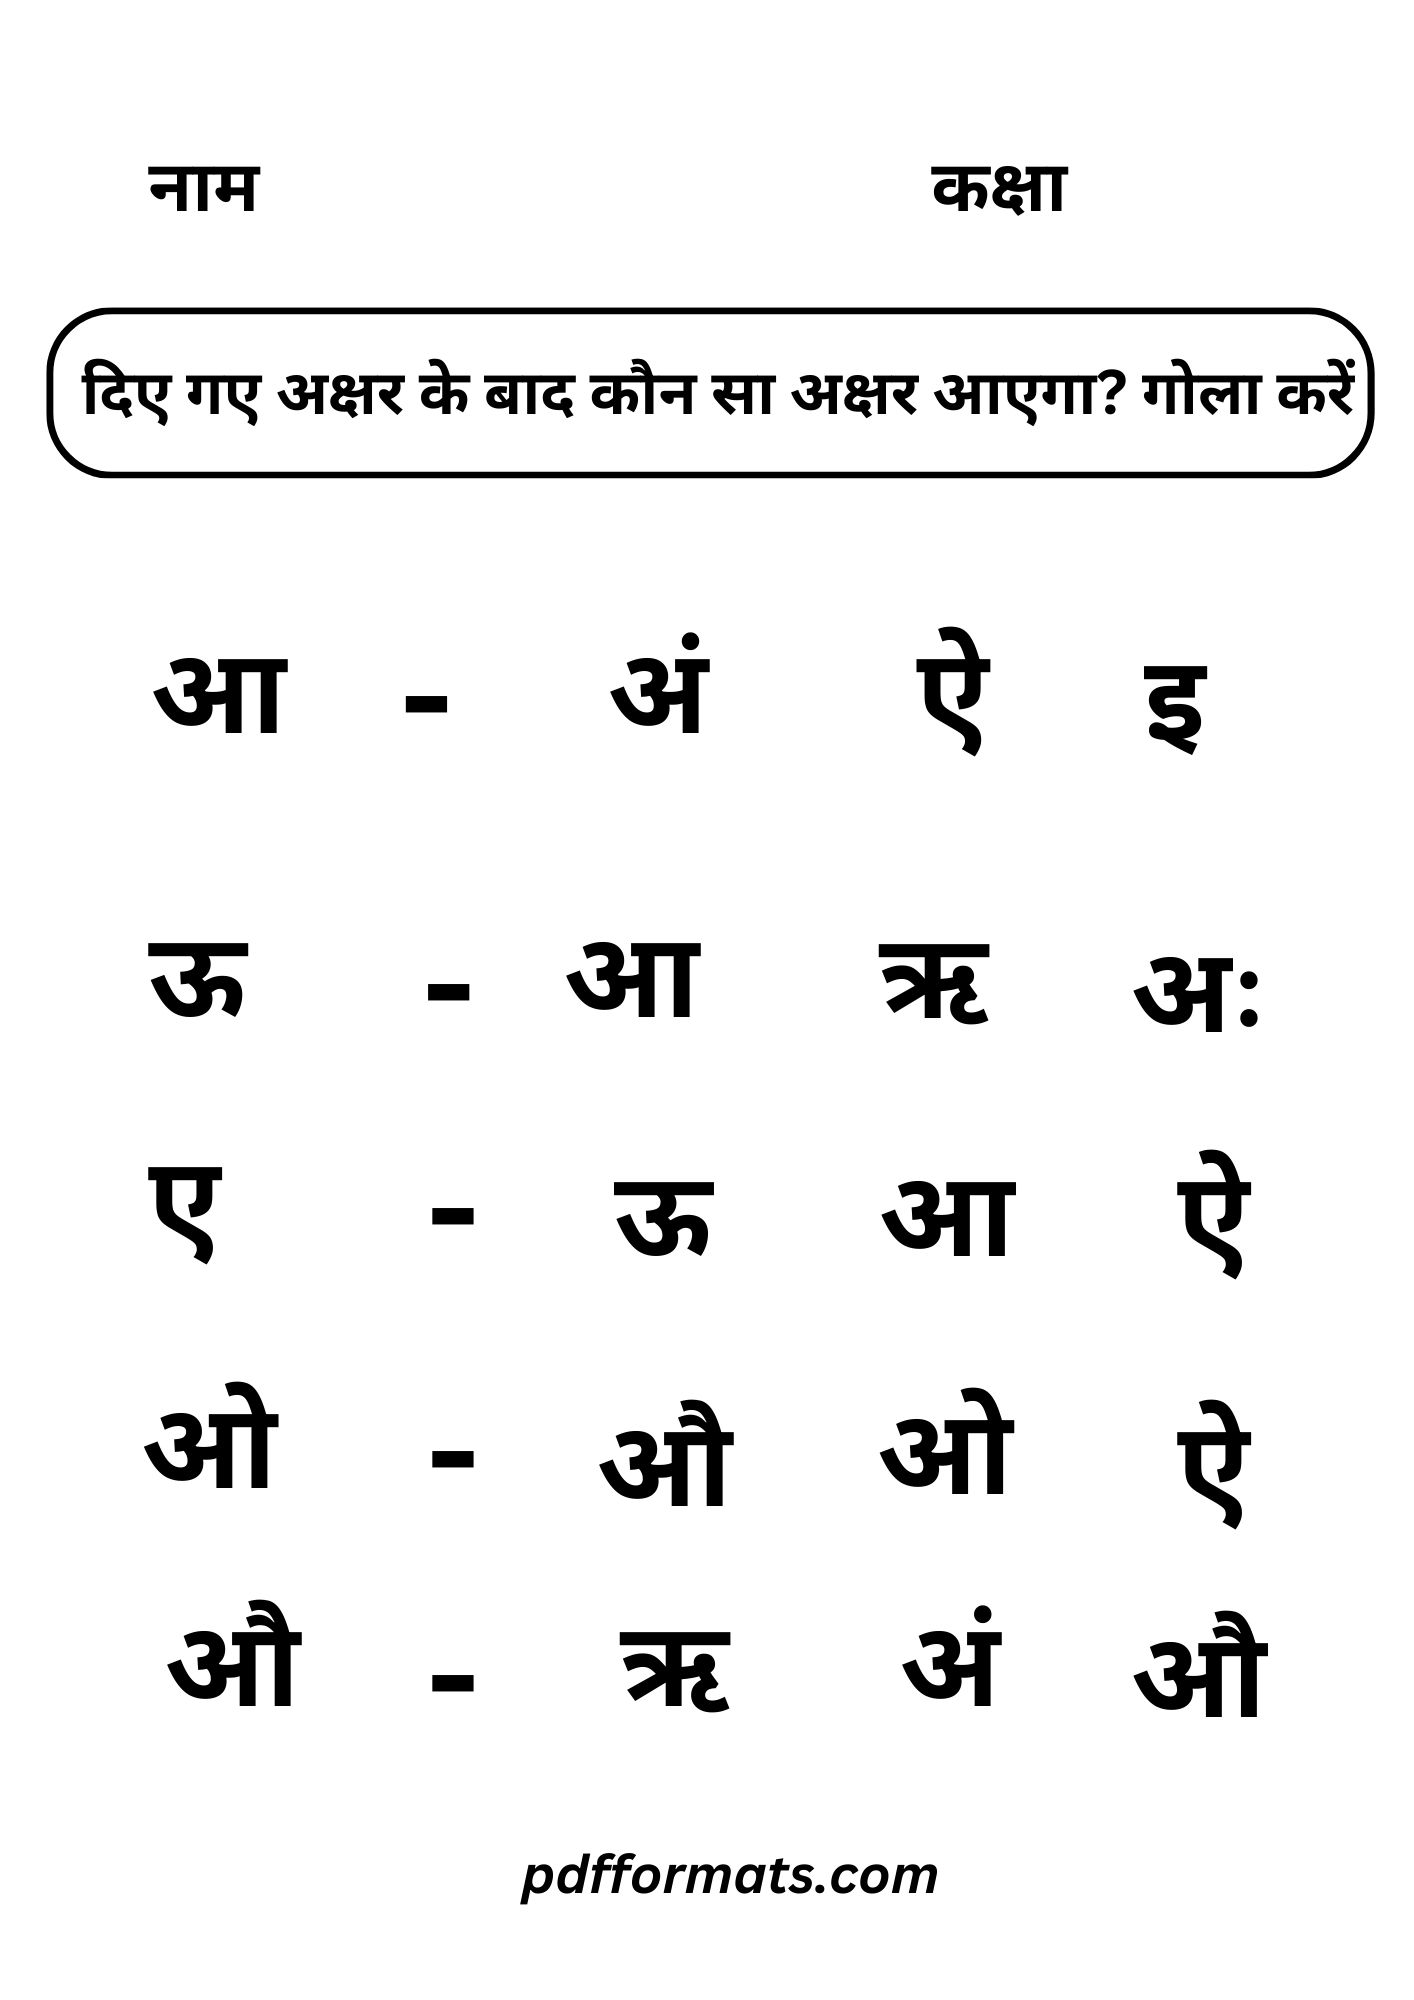 नाम कक्षा
दिए गए अक्षर के बाद कौन सा अक्षर आएगा? गोला करें
आ - अं ऐ इ
ऊ - आ ऋ अः
ए - ऊ आ ऐ
ओ - औ ओ ऐ
औ - ऋ अं औ
pdfformats.com